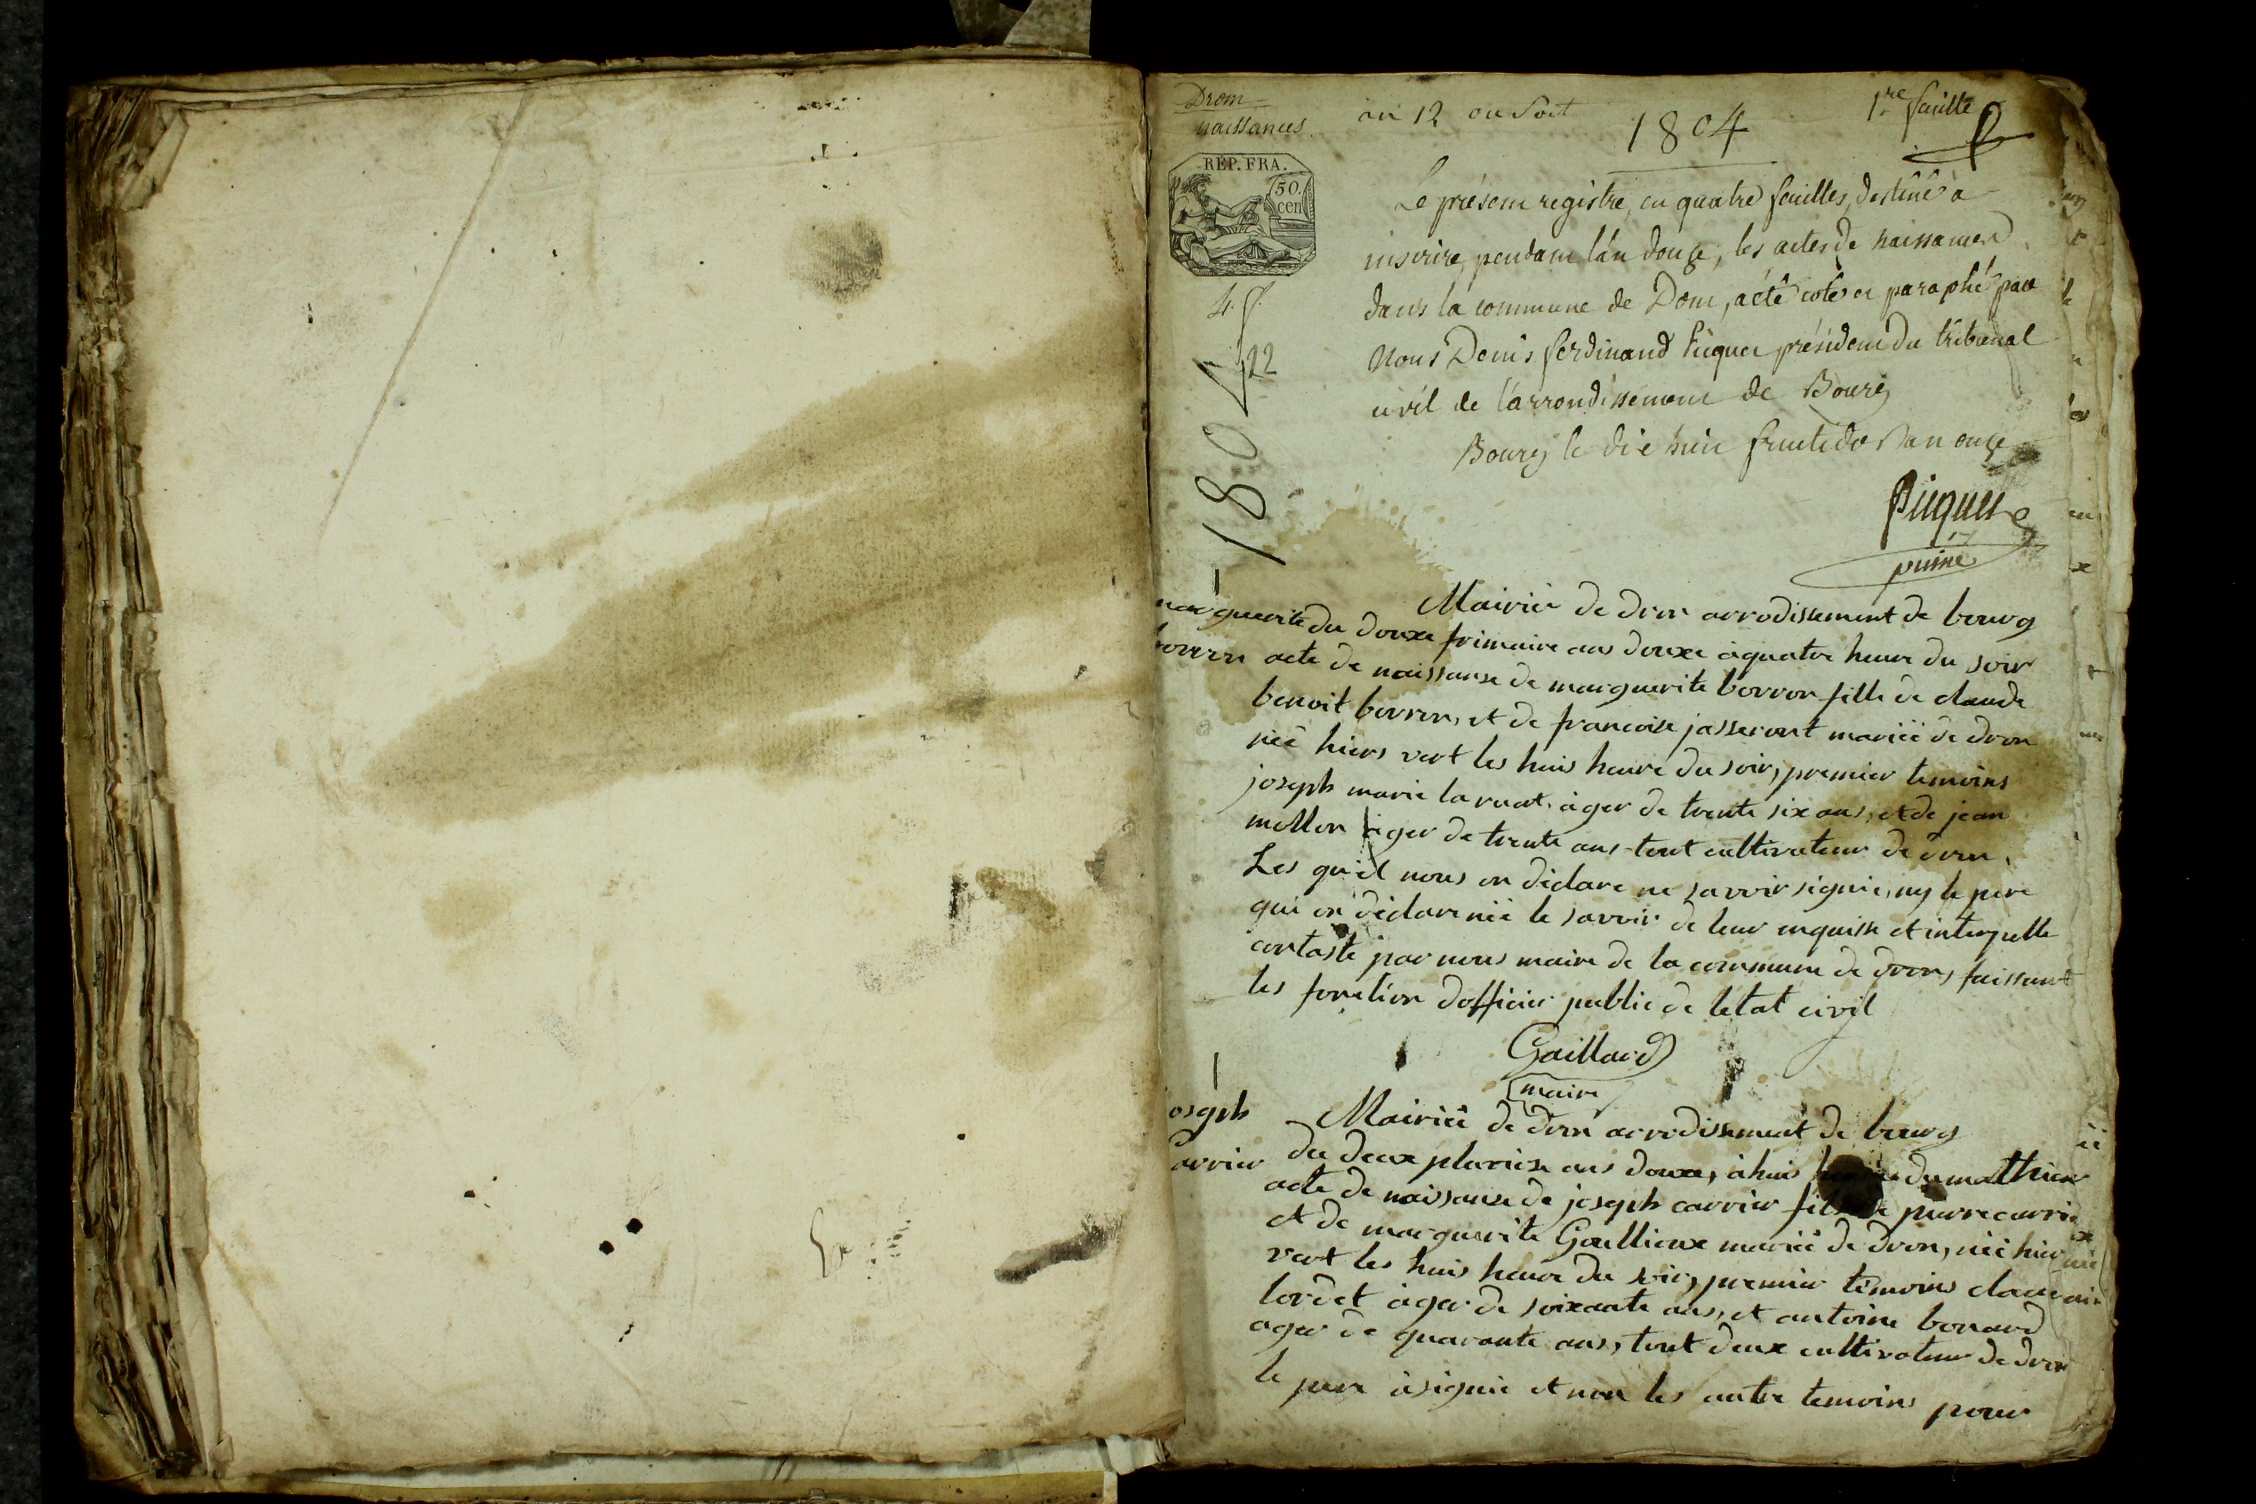 Drom
naissances
an 12 ou Soit
1804
1re feuille
REP. FRA.
50.
cen
4 f.
22
1804
Le présent registre, en quatre feuilles, destiné à
inscrire, pendant l'an douze, les actes de naissances
dans la commune de Dom, a été coté et paraphé par
Nous Denis ferdinand Picquet président du tribunal
civil de l'arrondissement de Bourg
Bourg le dix huit fructidor an onze
Picquet
puiné
Mairie de dron arrodissement de bourg
marguerite
borron
du douxe frimaire ans douxe à quatre heure du soir
acte de naissanse de marguerite borron fille de claude
benoit borron, et de francoise jasseront mariéé de dron
néé hiers vert les huis heuré du soir, premier temoins
joseph marie laruat àger de trente six ans, et de jean
mollon àger de trente ans tout cultivateur de dron,
Les qu'il nous on déclare ne savoir signié, ny le pere
qui on déclare néé le savoir de leur enquisse et interpelle
contasté par nous maire de la commune de dron, faissant
les fonction dofficié public de letat civil
Gaillard
maire
joseph
carrier
Mairiéé de dron arrodissement de bourg
du deux pluviose ans douxe, à huis du mathier
acte de naissanse de joseph carrier fils de pierre carrie
et de marguerite Gaullieux mariéé de dron, néé hier
vert les huis heure du soir, premier temoins claude
bordet àger de soixante ans, et antoine bonard
ager de quarante ans, tout deux cultivateur de dron
le pere à signié et non les autre temoins pour